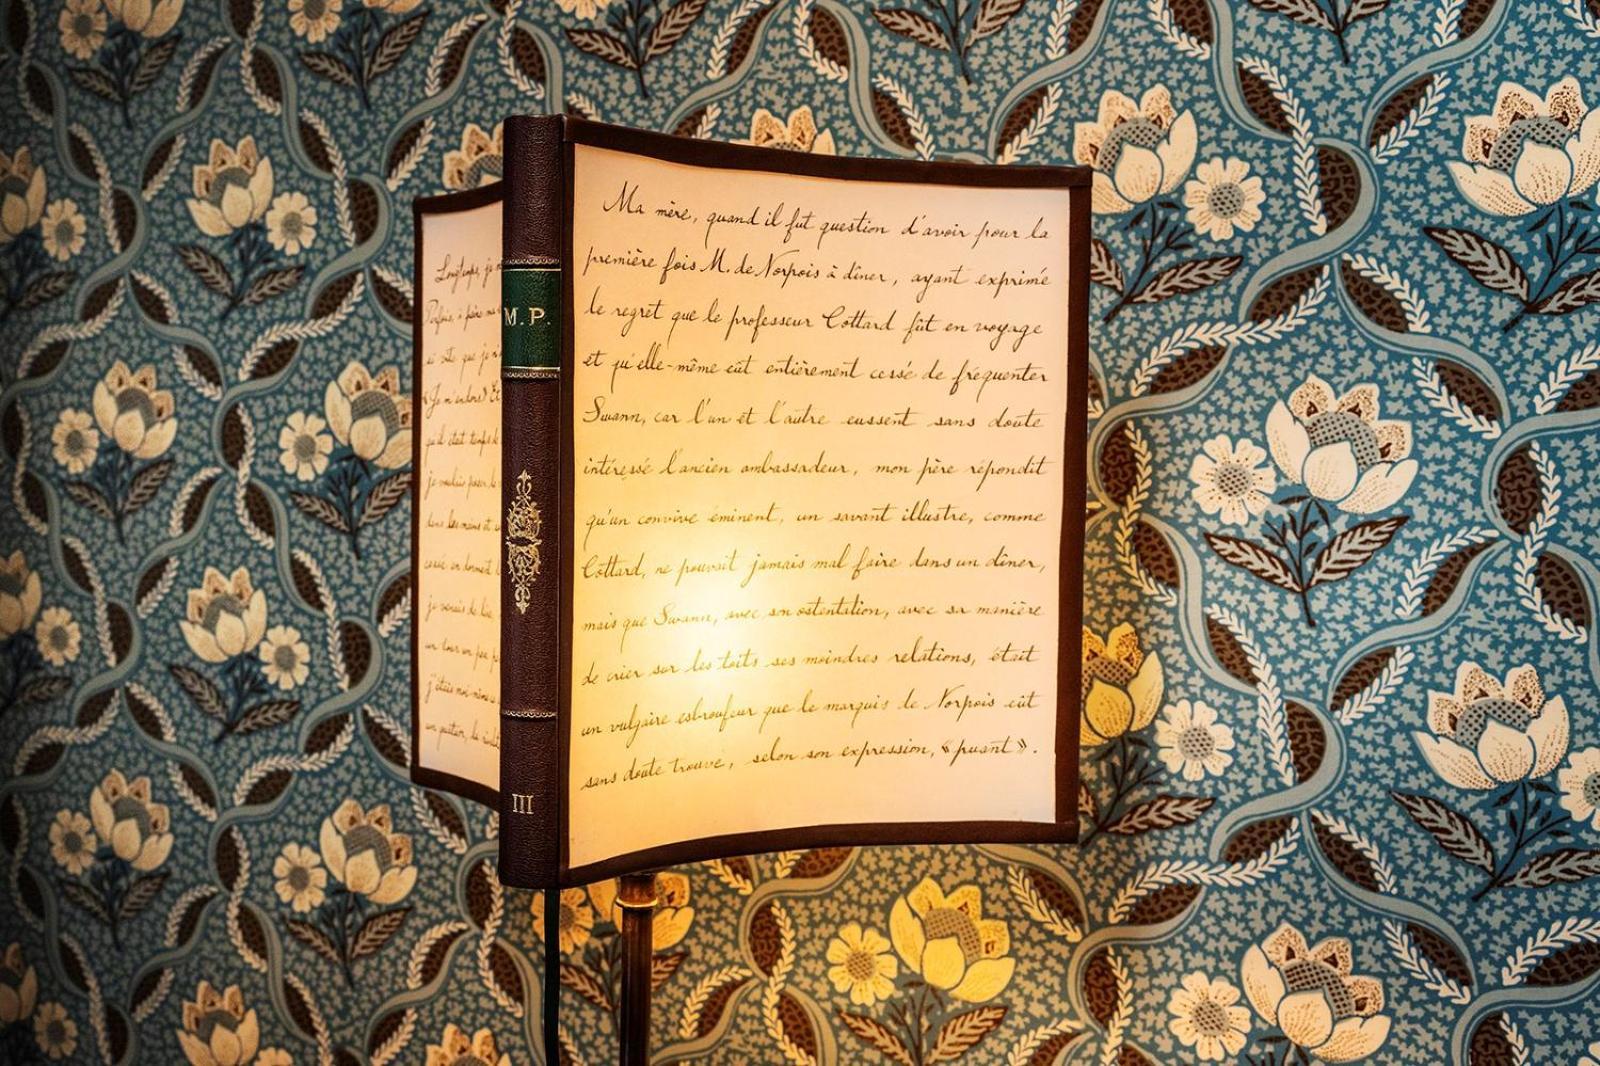 Longtemps, je
Parfois, à peine ma
si vite que je n
« Je m'endors » Et
qu'il était temps de
je voulais poser le
dans les mains et
cessé en dormant
je venais de lire,
un tour un peu p
j'étais moi-même
un quatuor, la rivali
M.P.
III
Ma mère, quand il fut question d'avoir pour la
première fois M. de Norpois à dîner, ayant exprimé
le regret que le professeur Cottard fût en voyage
et qu'elle-même eût entièrement cessé de fréquenter
Swann, car l'un et l'autre eussent sans doute
intéressé l'ancien ambassadeur, mon père répondit
qu'un convive éminent, un savant illustre, comme
Cottard, ne pouvait jamais mal faire dans un dîner,
mais que Swann, avec son ostentation, avec sa manière
de crier sur les toits ses moindres relations, était
un vulgaire esbroufeur que le marquis de Norpois eût
sans doute trouvé, selon son expression, « puant ».